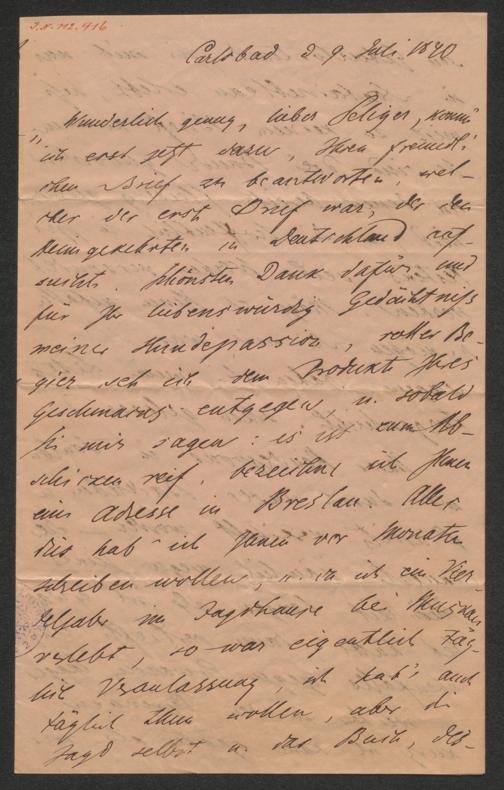 I.N. 112.416
Carlsbad d. 9 Juli 1840.
Wunderlich genug, lieber Seliger, komm'
ich erst jetzt dazu, Ihren freundli-
chen Brief zu beantworten, wel-
cher der erste Brief war, der den
Heimgekehrten in Deutschland auf-
suchte. Schönsten Dank dafür und
für Ihr liebenswürdig Gedächtniß
meiner Hundepassion, voller Be-
gier seh ich dem Produkte Ihres
Geschmacks entgegen, u. sobald
Sie mir sagen: es ist zum Ab-
schicken reif, bezeichne ich Ihnen
eine Adresse in Breslau. Alles
dies hab' ich Ihnen vor Monate
schreiben wollen, u. da ich ein Vier-
teljahr im Jagdhause bei Muskau
verlebt, so war eigentlich täg-
lich Veranlassung, ich hab's auch
täglich thun wollen, aber die
Jagd selbst u. das Buch, des-